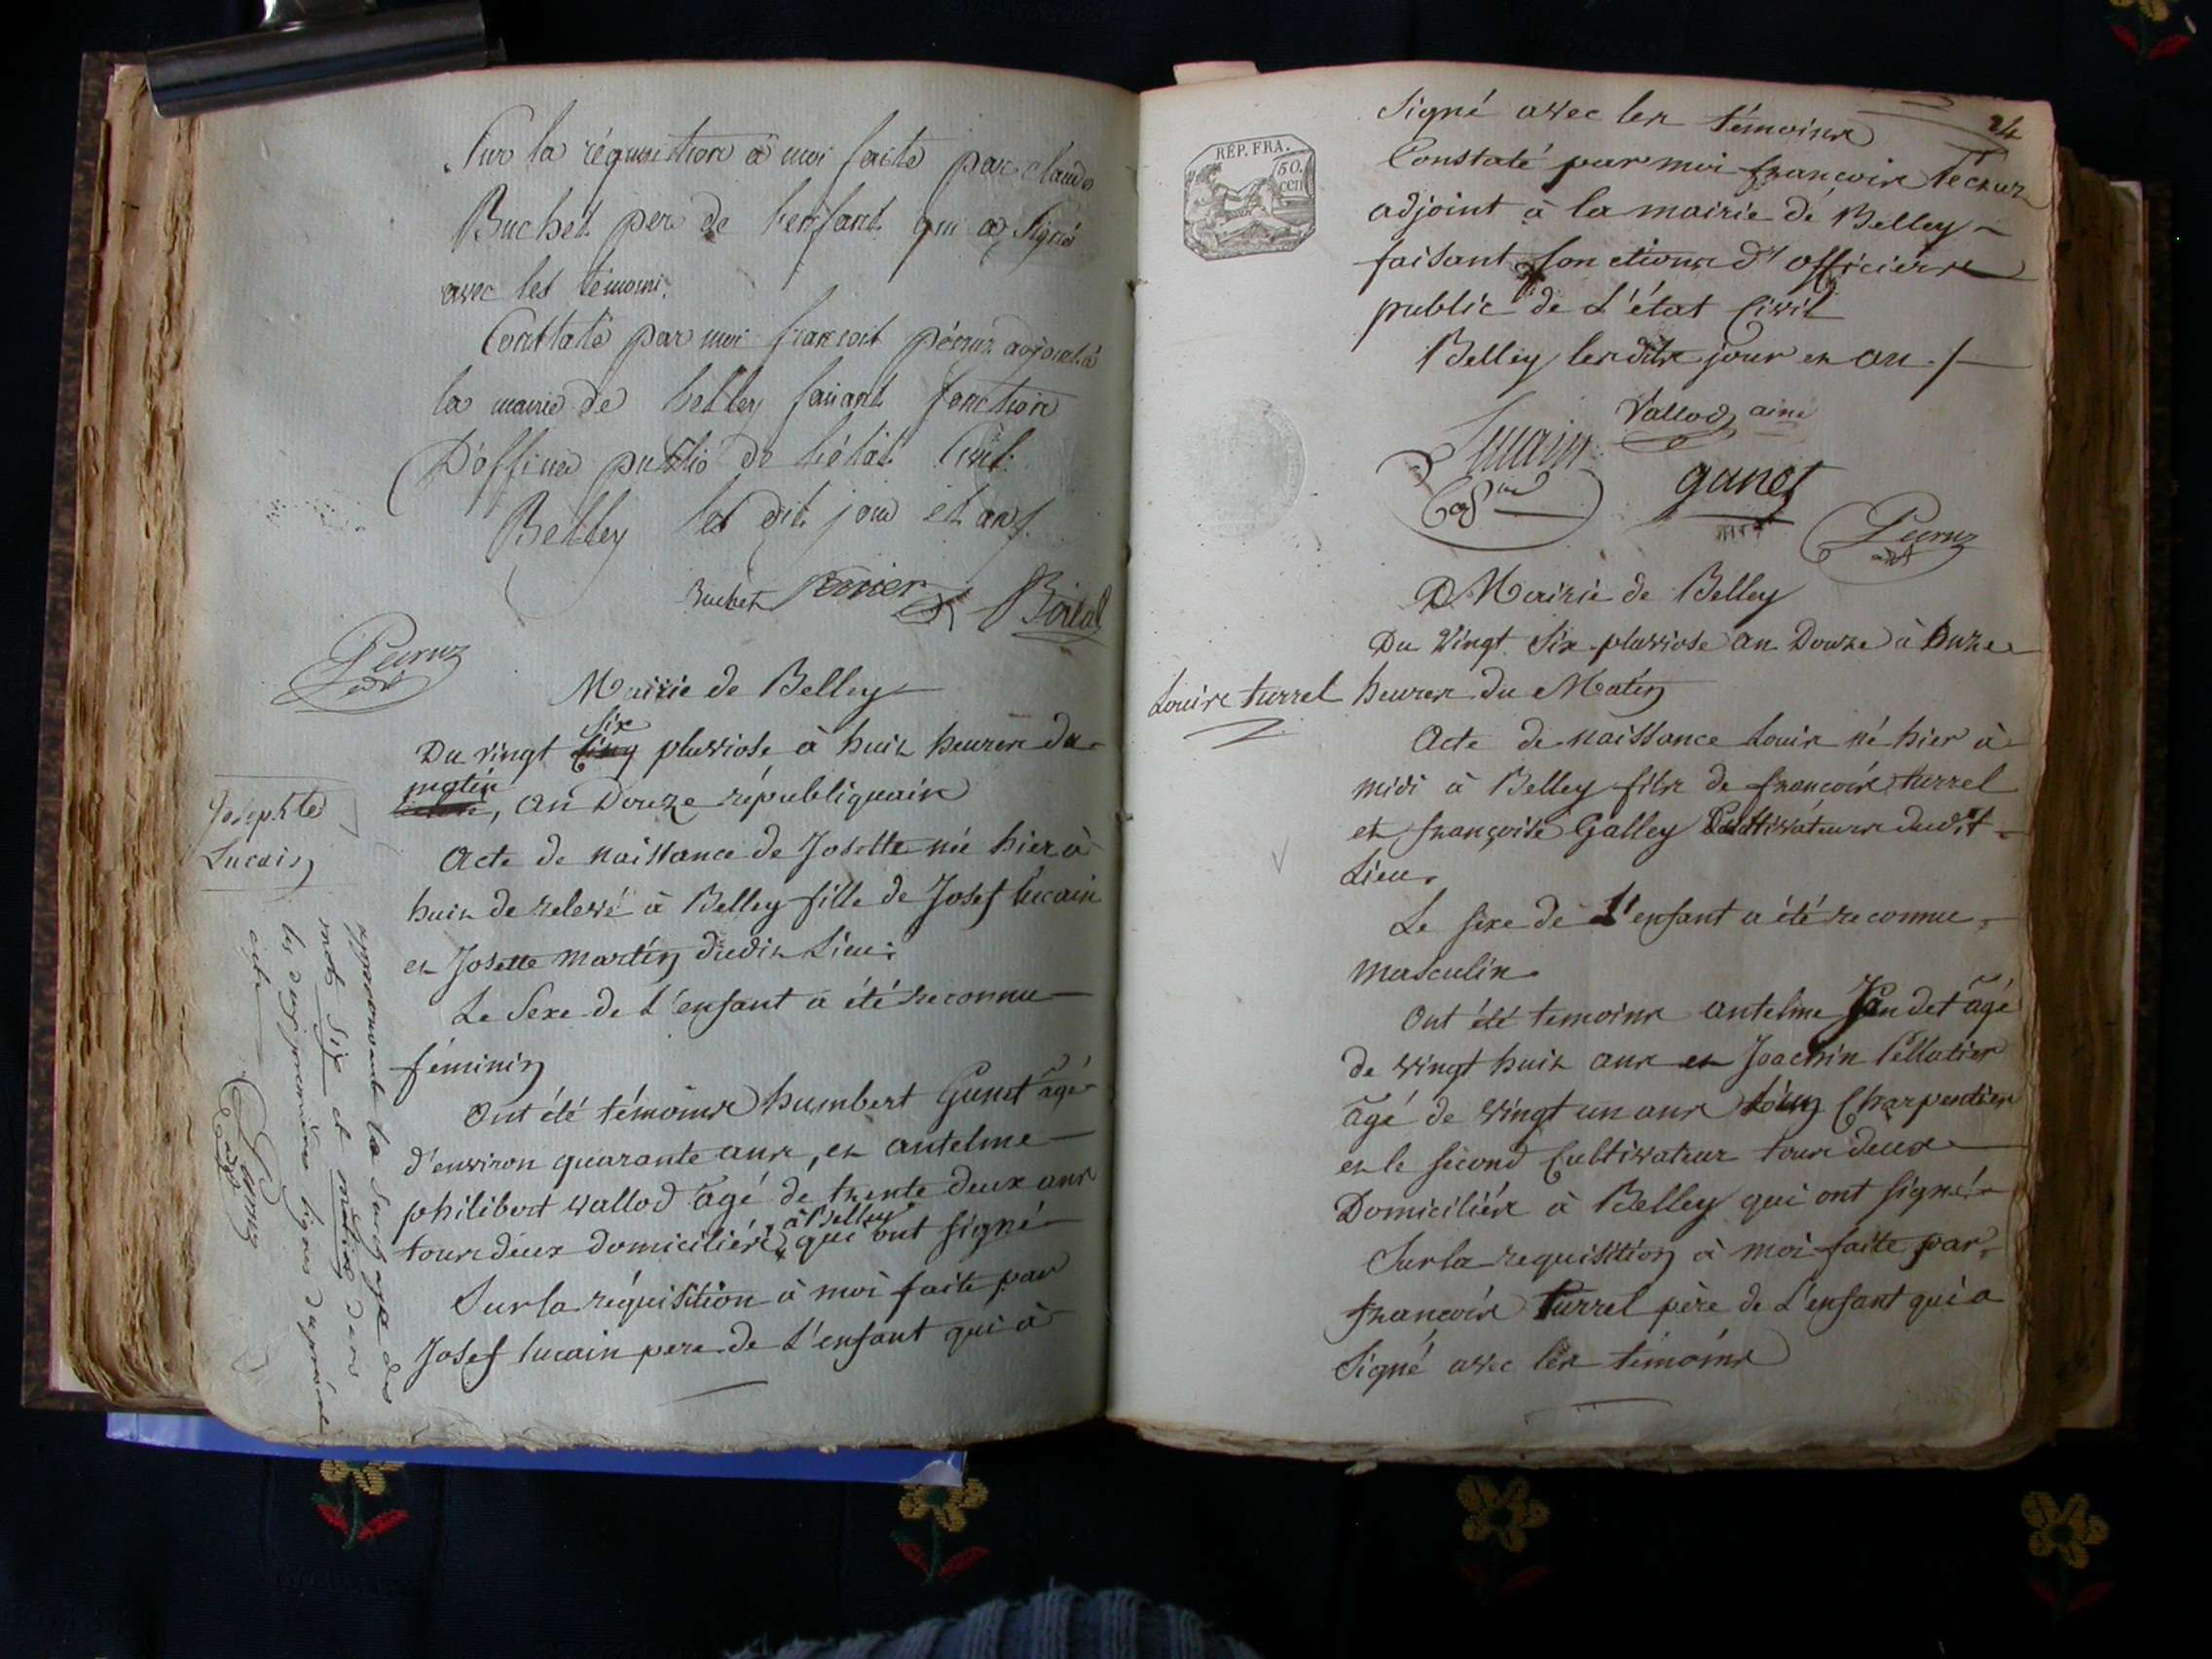 Sur la réquisition à moi faite par claude
Buchet pere de l'enfant qui a signé
avec les témoins.
Constaté par moi francois pécruz adjoint à
la mairie de belley faisant fonction
D'officier public de l'état Civil.
Belley les dit jour et an ./.
Buchet
Mairie de Belley
Six
Du vingt cinq pluviose à huit heures du
matin
, an Douze républiquain
Josephte
Lucain
Acte de naissance de Josette née hier à
huit de relevé à Belley fille de Josef lucain
et Josette martin dudit Lieu.
Le Sexe de L'enfant a été reconnu
féminin
Ont été témoins humbert Ganet agé
d'environ quarante ans, et antelme
philibert vallod agé de trente deux ans
à Belley
tous deux domiciliés qui ont signé
Sur la réquisition à moi faite par
Josef lucain pere de L'enfant qui a
approuvant la surcharge des
mots Six et matin dans
les deux premieres lignes du présent
acte
24
REP. FRA.
50.
cen
Signé avec les témoins
Constaté par moi françois Pécruz
adjoint à la mairie de Belley
faisant fonctions d'officier
public de L'état Civil
Belley lesdits jour et an ./.
Vallod ainé
Lucain
ganet
Pecruz
adjt
Mairie de Belley
Du Vingt Six pluviose an Douze à Onze
Louis turrel
heures du Matin
Acte de naissance Louis né hier à
midi à Belley fils de françois turrel
et françoise Galley Cultivateurs dudit
Lieu.
Le sexe de L'enfant a été reconnu
masculin
Ont été temoins antelme Jandet agé
de vingt huit ans et Joachin Pellatier
agé de vingt un ans Charpentier
et le second Cultivateur tous deux
Domiciliés à Belley qui ont signé
Sur la requisition à moi faite par
françois Turrel père de L'enfant qui a
Signé avec les témoins